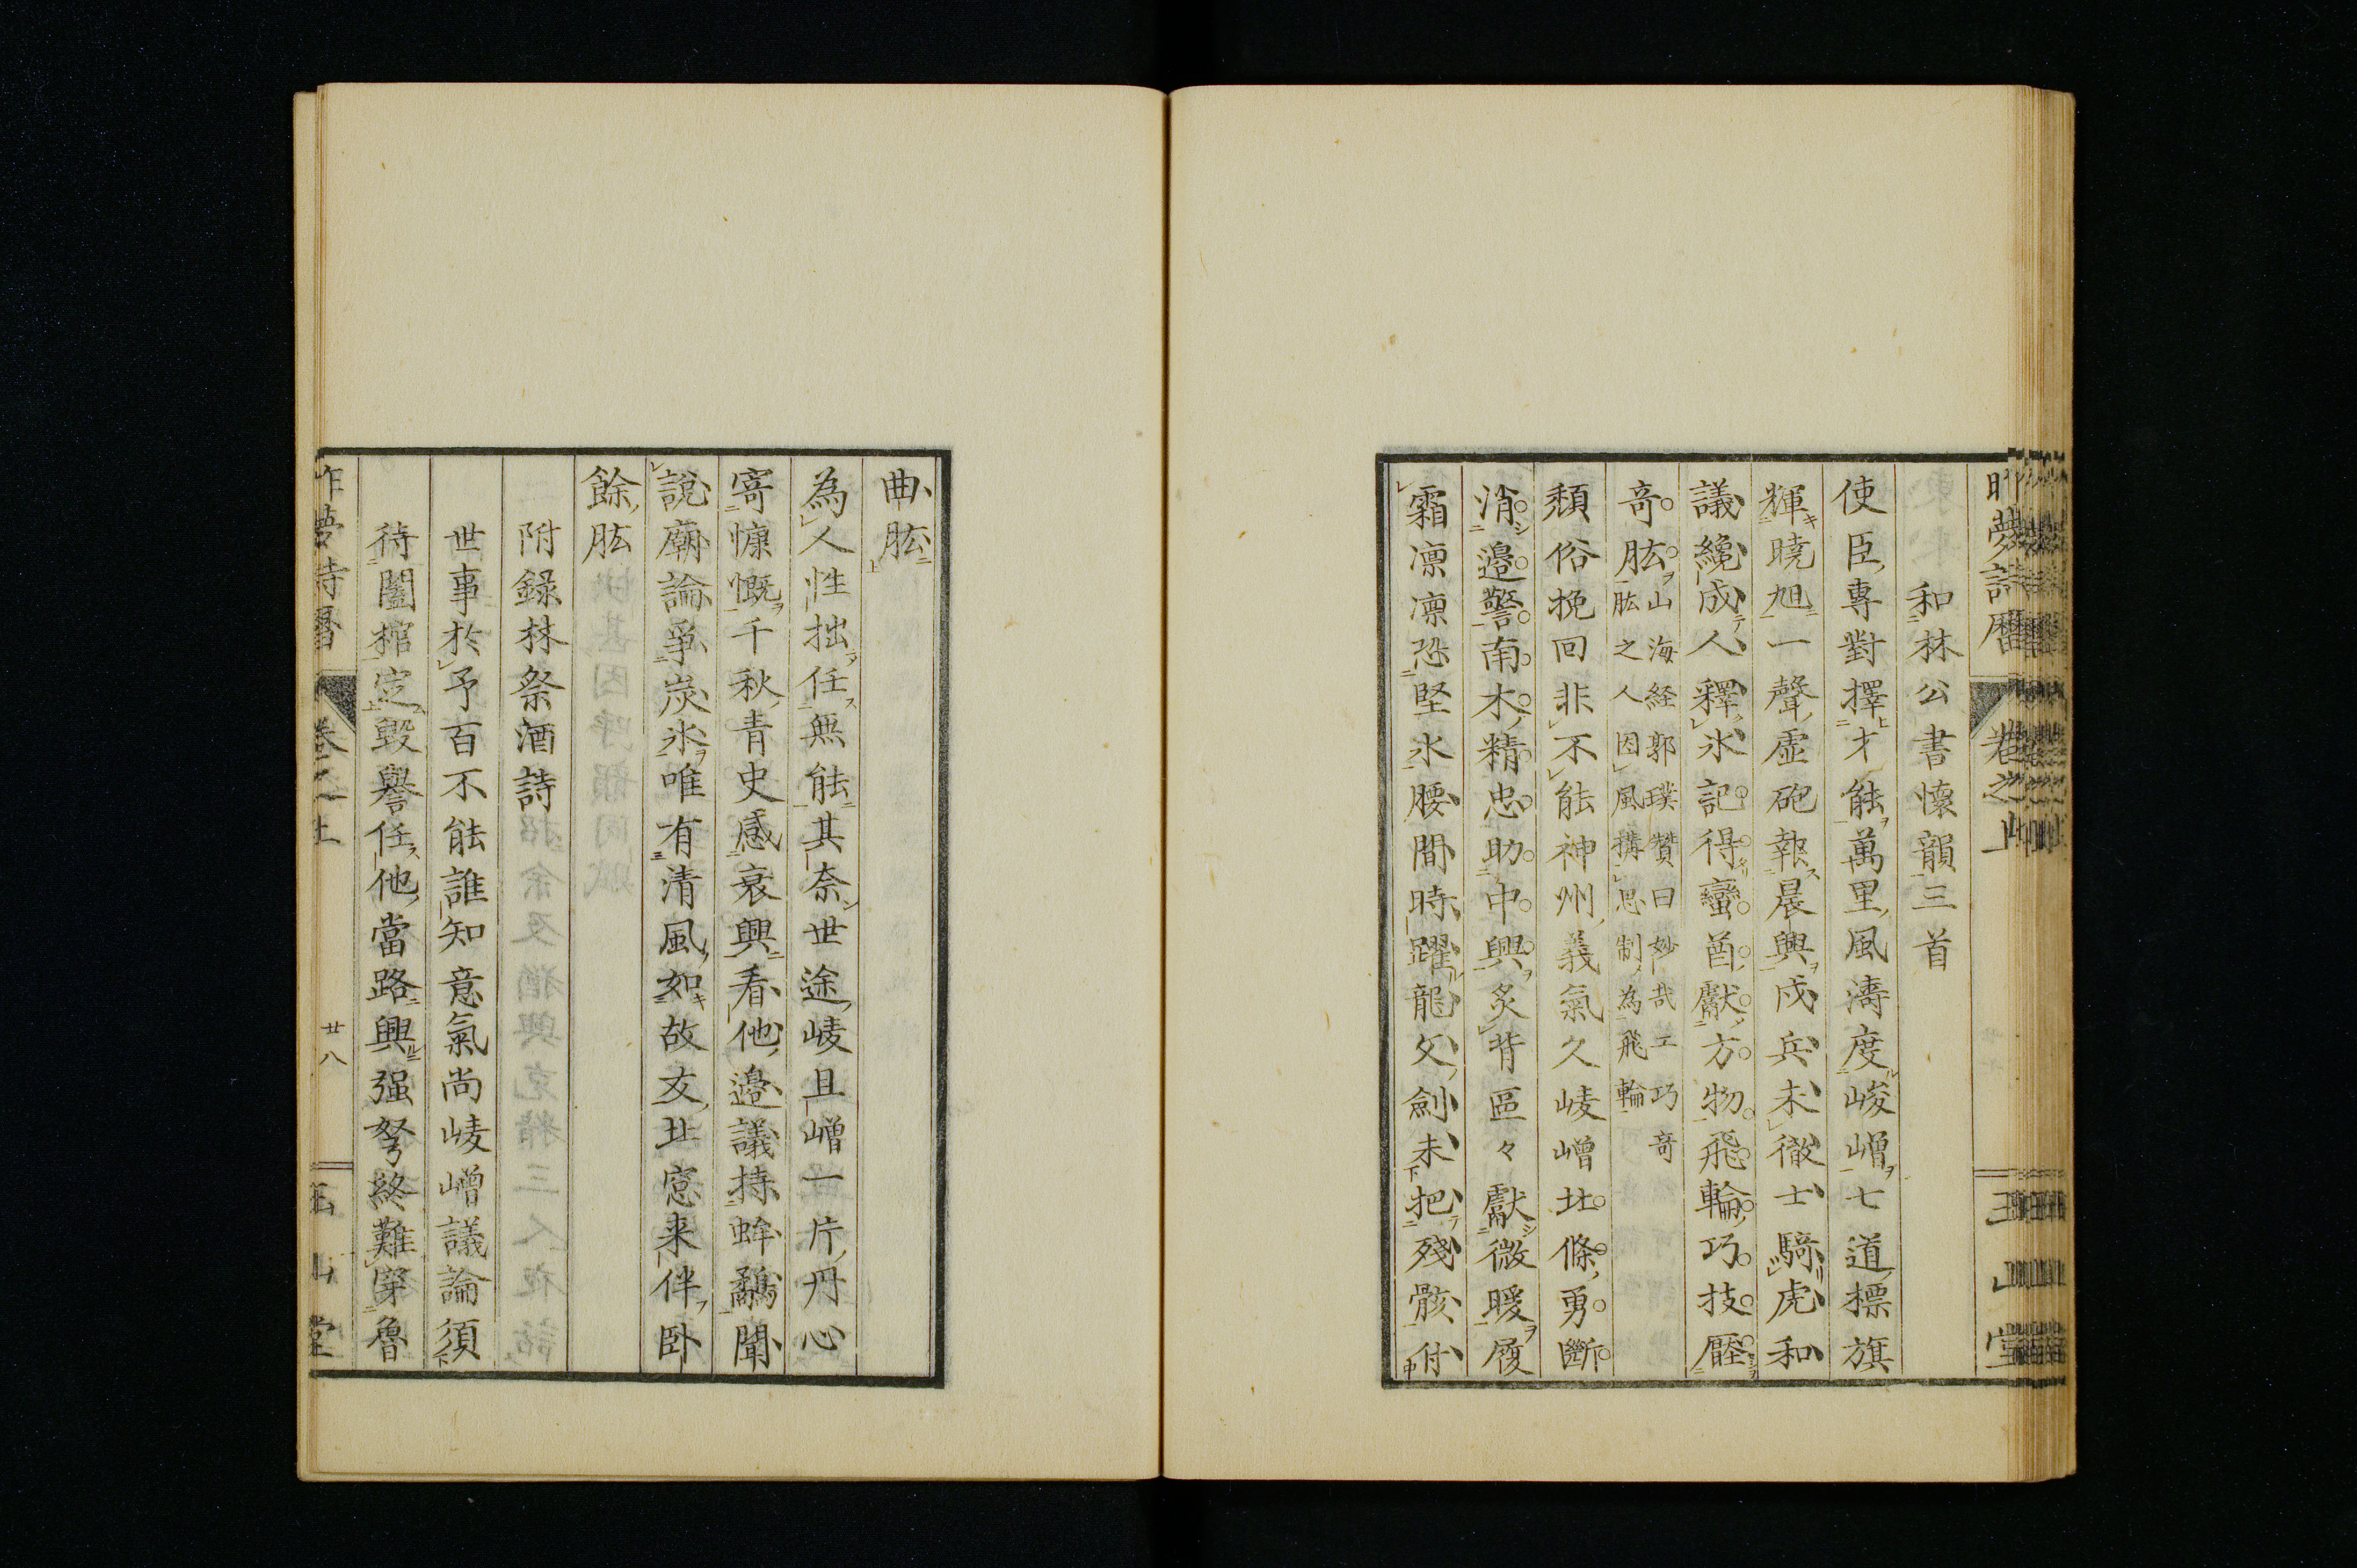 昨夢詩曆 卷之上 玉山堂
和林公書懷韻三首
使臣專對擇才能萬里風濤度崚嶒七道標旗
輝曉旭一聲虛砲報晨興戍兵未徹士騎虎和
議纔成人釋冰記得蠻酋獻方物飛輪巧技壓
奇肱山海経郭璞贊曰妙哉工巧奇
肱之人因風搆思制為飛輪
頹俗挽回非不能神州義氣久崚嶒北條勇斷
消邊警南木精忠助中興炙背區々獻微暖履
霜凛凛恐堅氷腰間時躍龍文劍未把殘骸付
曲肱
為人性拙任無能其奈世途崚且嶒一片丹心
寄慷慨千秋青史感衰興看他邊議持蚌鷸聞
說廟論爭炭氷唯有清風如故友北窓来伴臥
餘肱
附錄林祭酒詩
世事於予百不能誰知意氣尚崚嶒議論須
待闔棺定毀譽任他當路興强弩終難穿魯
昨夢詩曆 卷之上 廿八 玉山堂